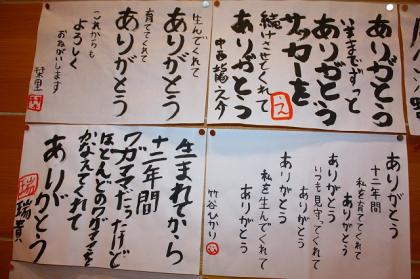 生んでくれて
ありがとう
育ててくれて
ありがとう
これからも
よろしく
おねがいします
栞里
ありがとう
いままでずっと
ありがとう
サッカーを
続けさせてくれて
ありがとう
生まれてから
十二年間
ワガママだったけど
ほとんどのワガママを
かなえてくれて
ありがとう
瑞貴
ありがとう
十二年間
私を育ててくれて
ありがとう
いつも見守ってくれて
ありがとう
私を生んでくれて
ありがとう
竹谷ひかり